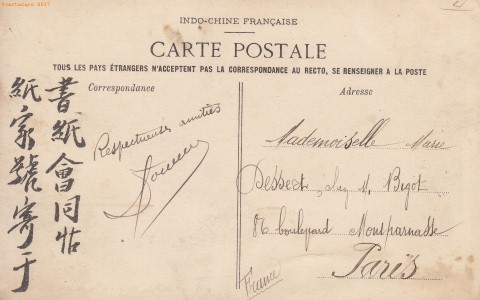 INDO-CHINE FRANÇAISE
CARTE POSTALE
TOUS LES PAYS ÉTRANGERS N'ACCEPTENT PAS LA CORRESPONDANCE AU RECTO, SE RENSEIGNER A LA POSTE
Correspondance
Adresse
書紙會同帖
紙家號寄于
Respectueuses amitiés
Mademoiselle Marie
Dessect, chez M. Bigot
86 boulevard Montparnasse
Paris
France